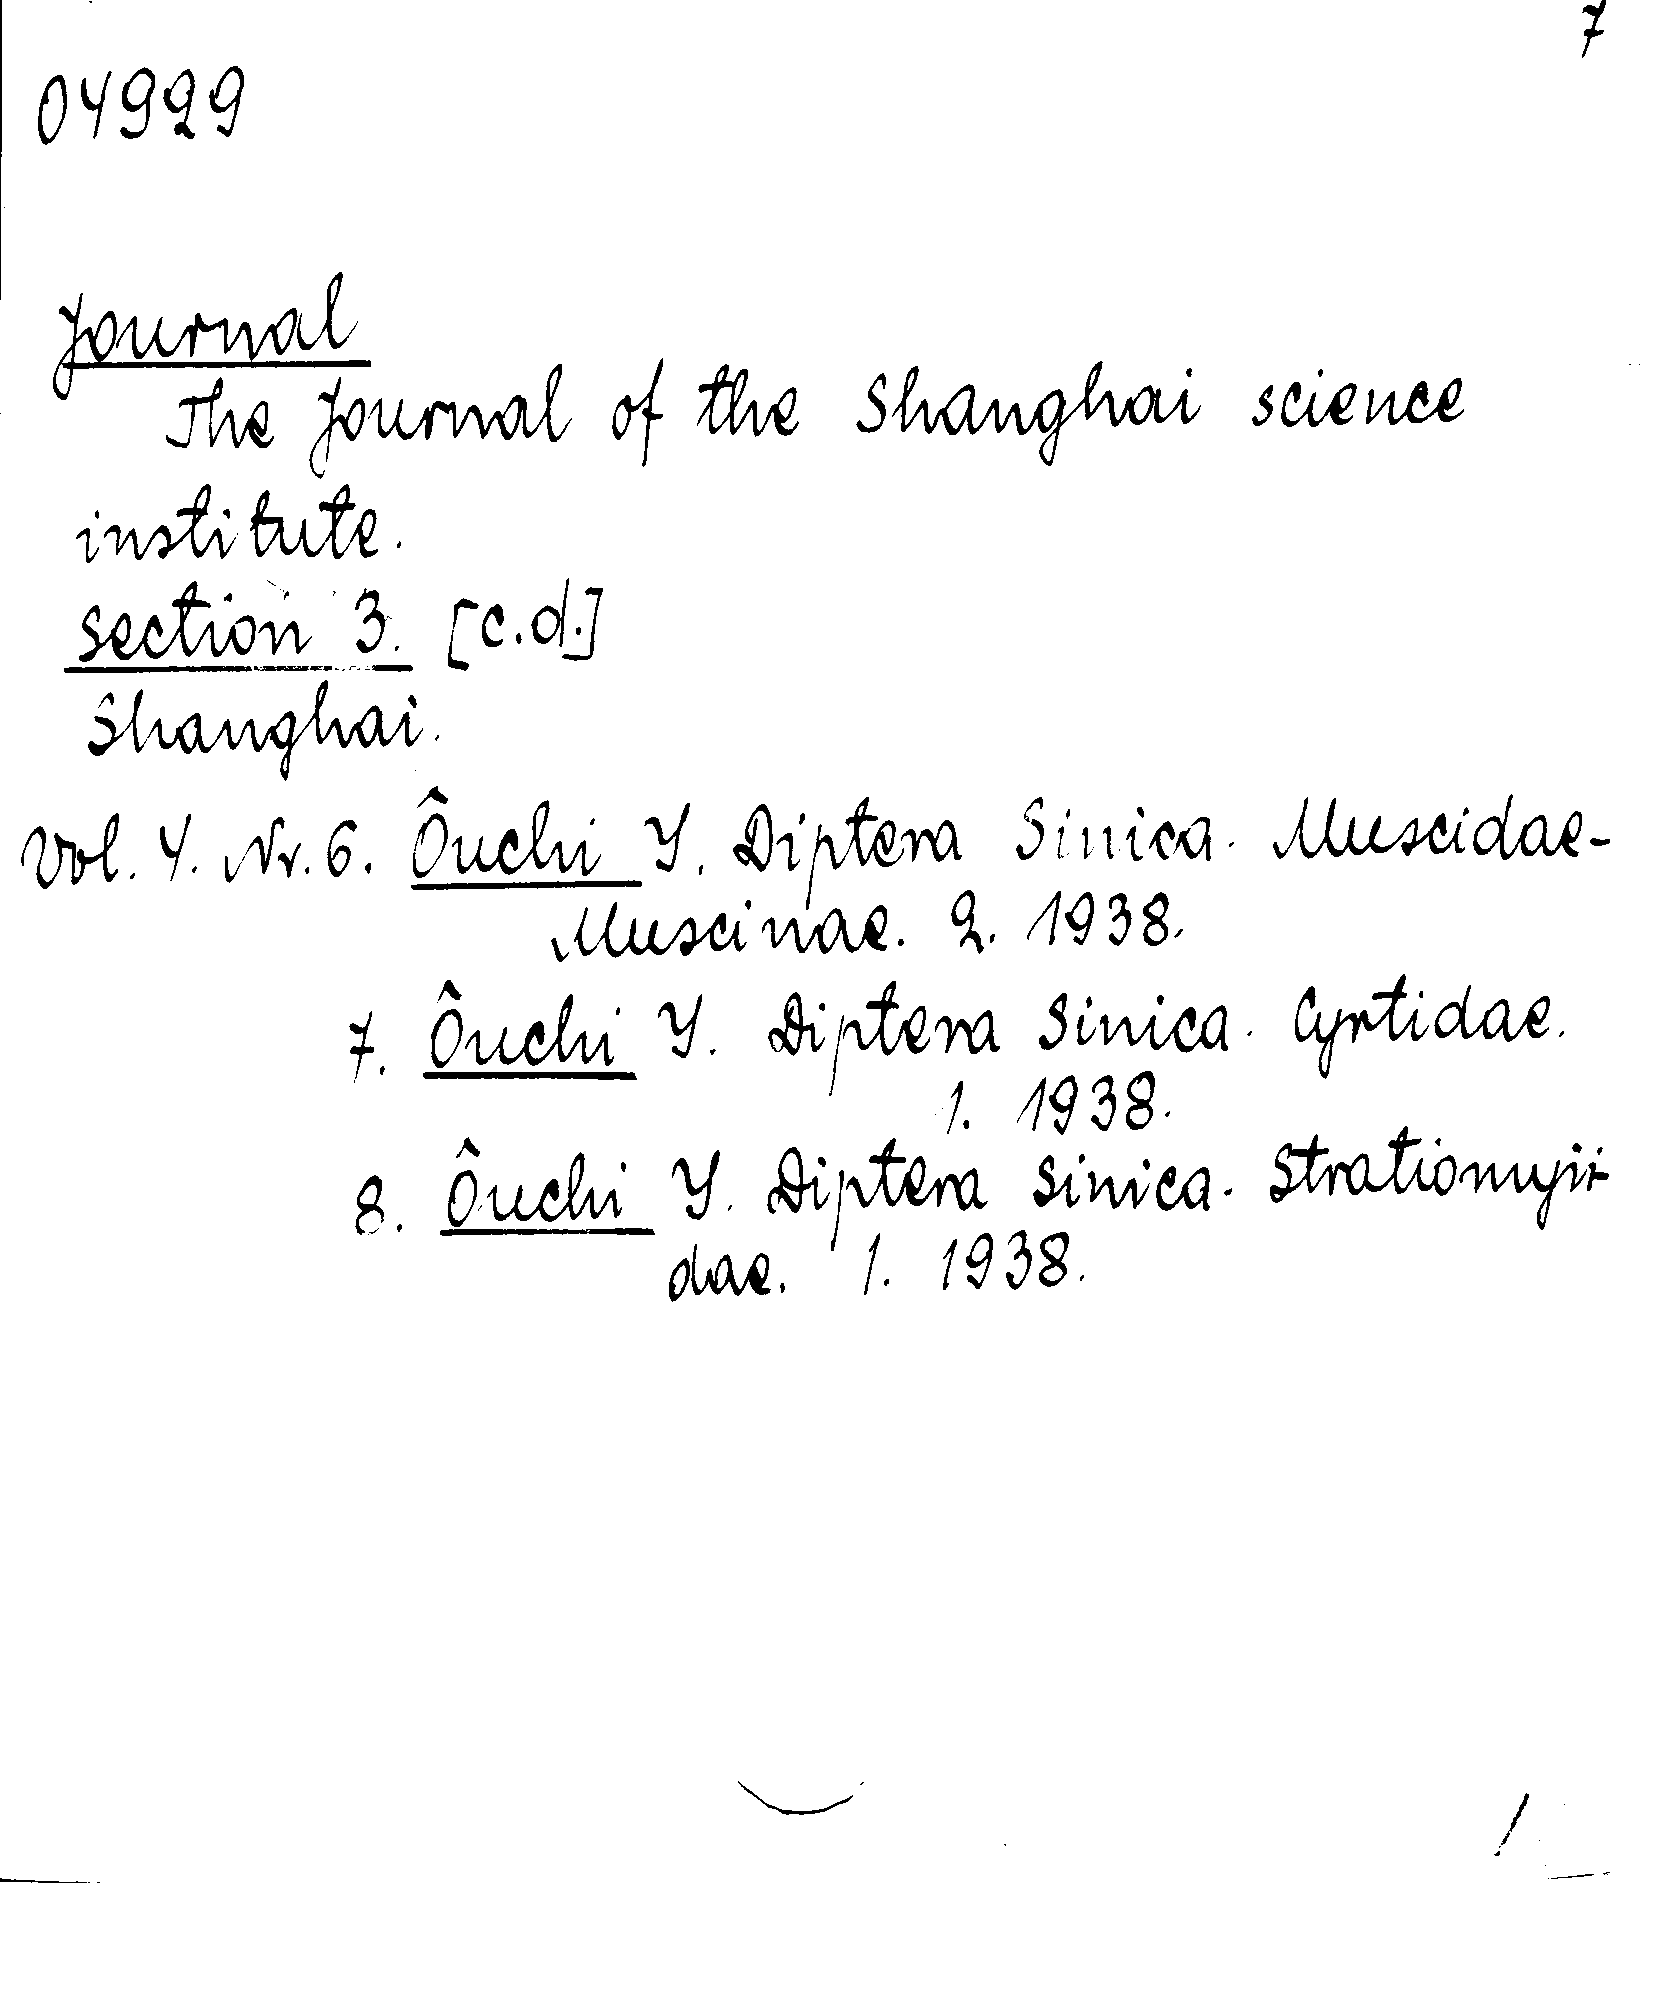 7
04929
Journal
The Journal of the Shanghai science
institute.
section 3. [c.d.]
Shanghai.
Vol. 4. Nr. 6. Ôuchi Y. Diptera Sinica. Muscidae-
Muscinae. 2. 1938.
7. Ôuchi Y. Diptera Sinica. Cyrtidae.
1. 1938.
8. Ôuchi Y. Diptera Sinica. Stratiomyii-
dae. 1. 1938.